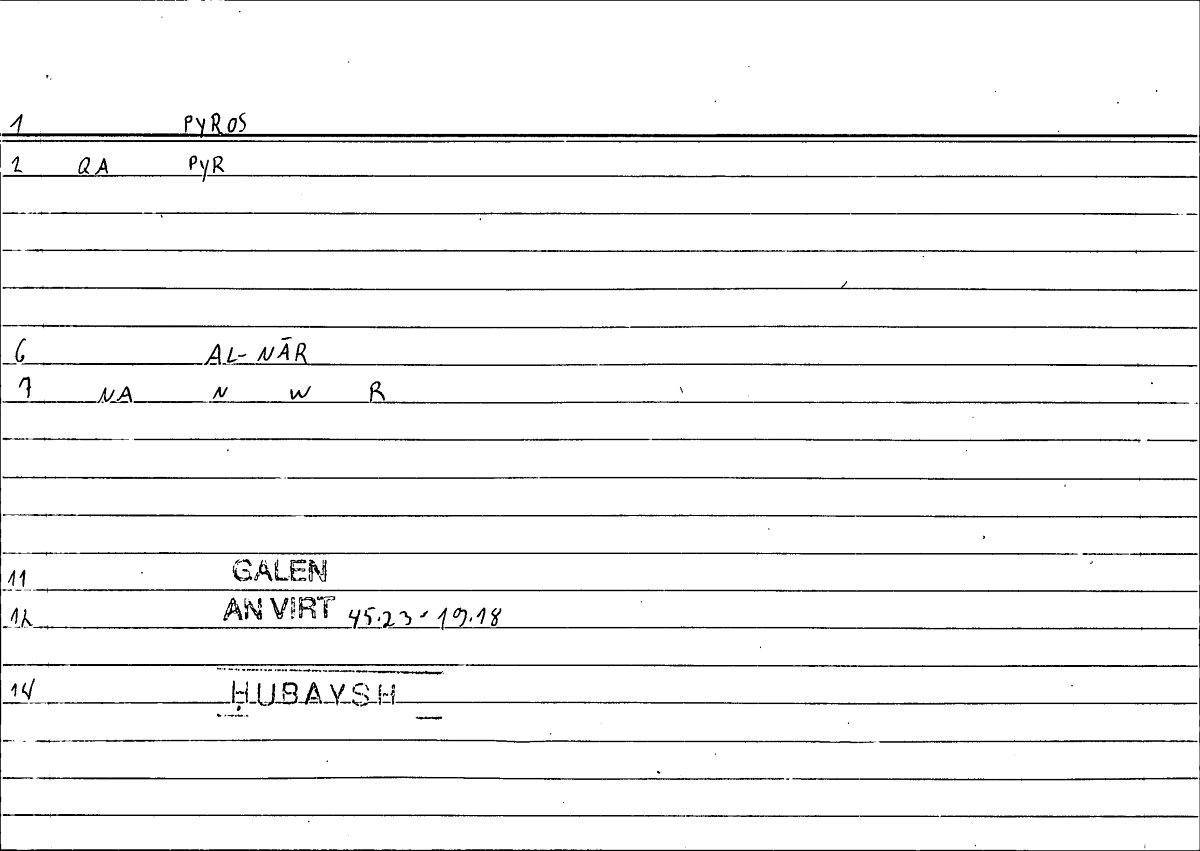 1 PYROS
2 QA PYR
6 AL-NĀR
7 NA N W R
11 GALEN
12 AN VIRT 45.23-19.18
14 ḤUBAYSH